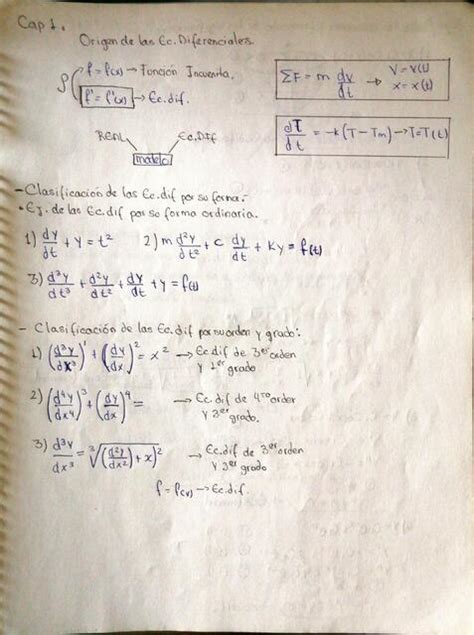 Cap 1.
Origen de las Ec. Diferenciales.
f = f(x) → Función Incognita.
f' = f'(x) → Ec. dif.
ΣF = m dv/dt → V = V(t) x = x(t)
REAL Ec. Dif
modelo
dT/dt = -k(T - Tm) → T = T(t)
- Clasificación de las Ec. dif por su forma:
• Ej. de las Ec. dif por su forma ordinaria.
1) dy/dt + y = t² 2) m d²y/dt² + c dy/dt + Ky = f(t)
3) d³y/dt³ + d²y/dt² + dy/dt + y = f(t)
- Clasificación de las Ec. dif por su orden y grado:
1) (d³y/dx³)¹ + (dy/dx)² = x² → Ec. dif de 3er orden
y 1er grado
2) (d⁴y/dx⁴)³ + (dy/dx)⁴ = → Ec. dif de 4to orden
y 3er grado.
3) d³y/dx³ = ∛((d²y/dx²) + x)² → Ec. dif de 3er orden
y 3er grado
f = f(x) → Ec. dif.